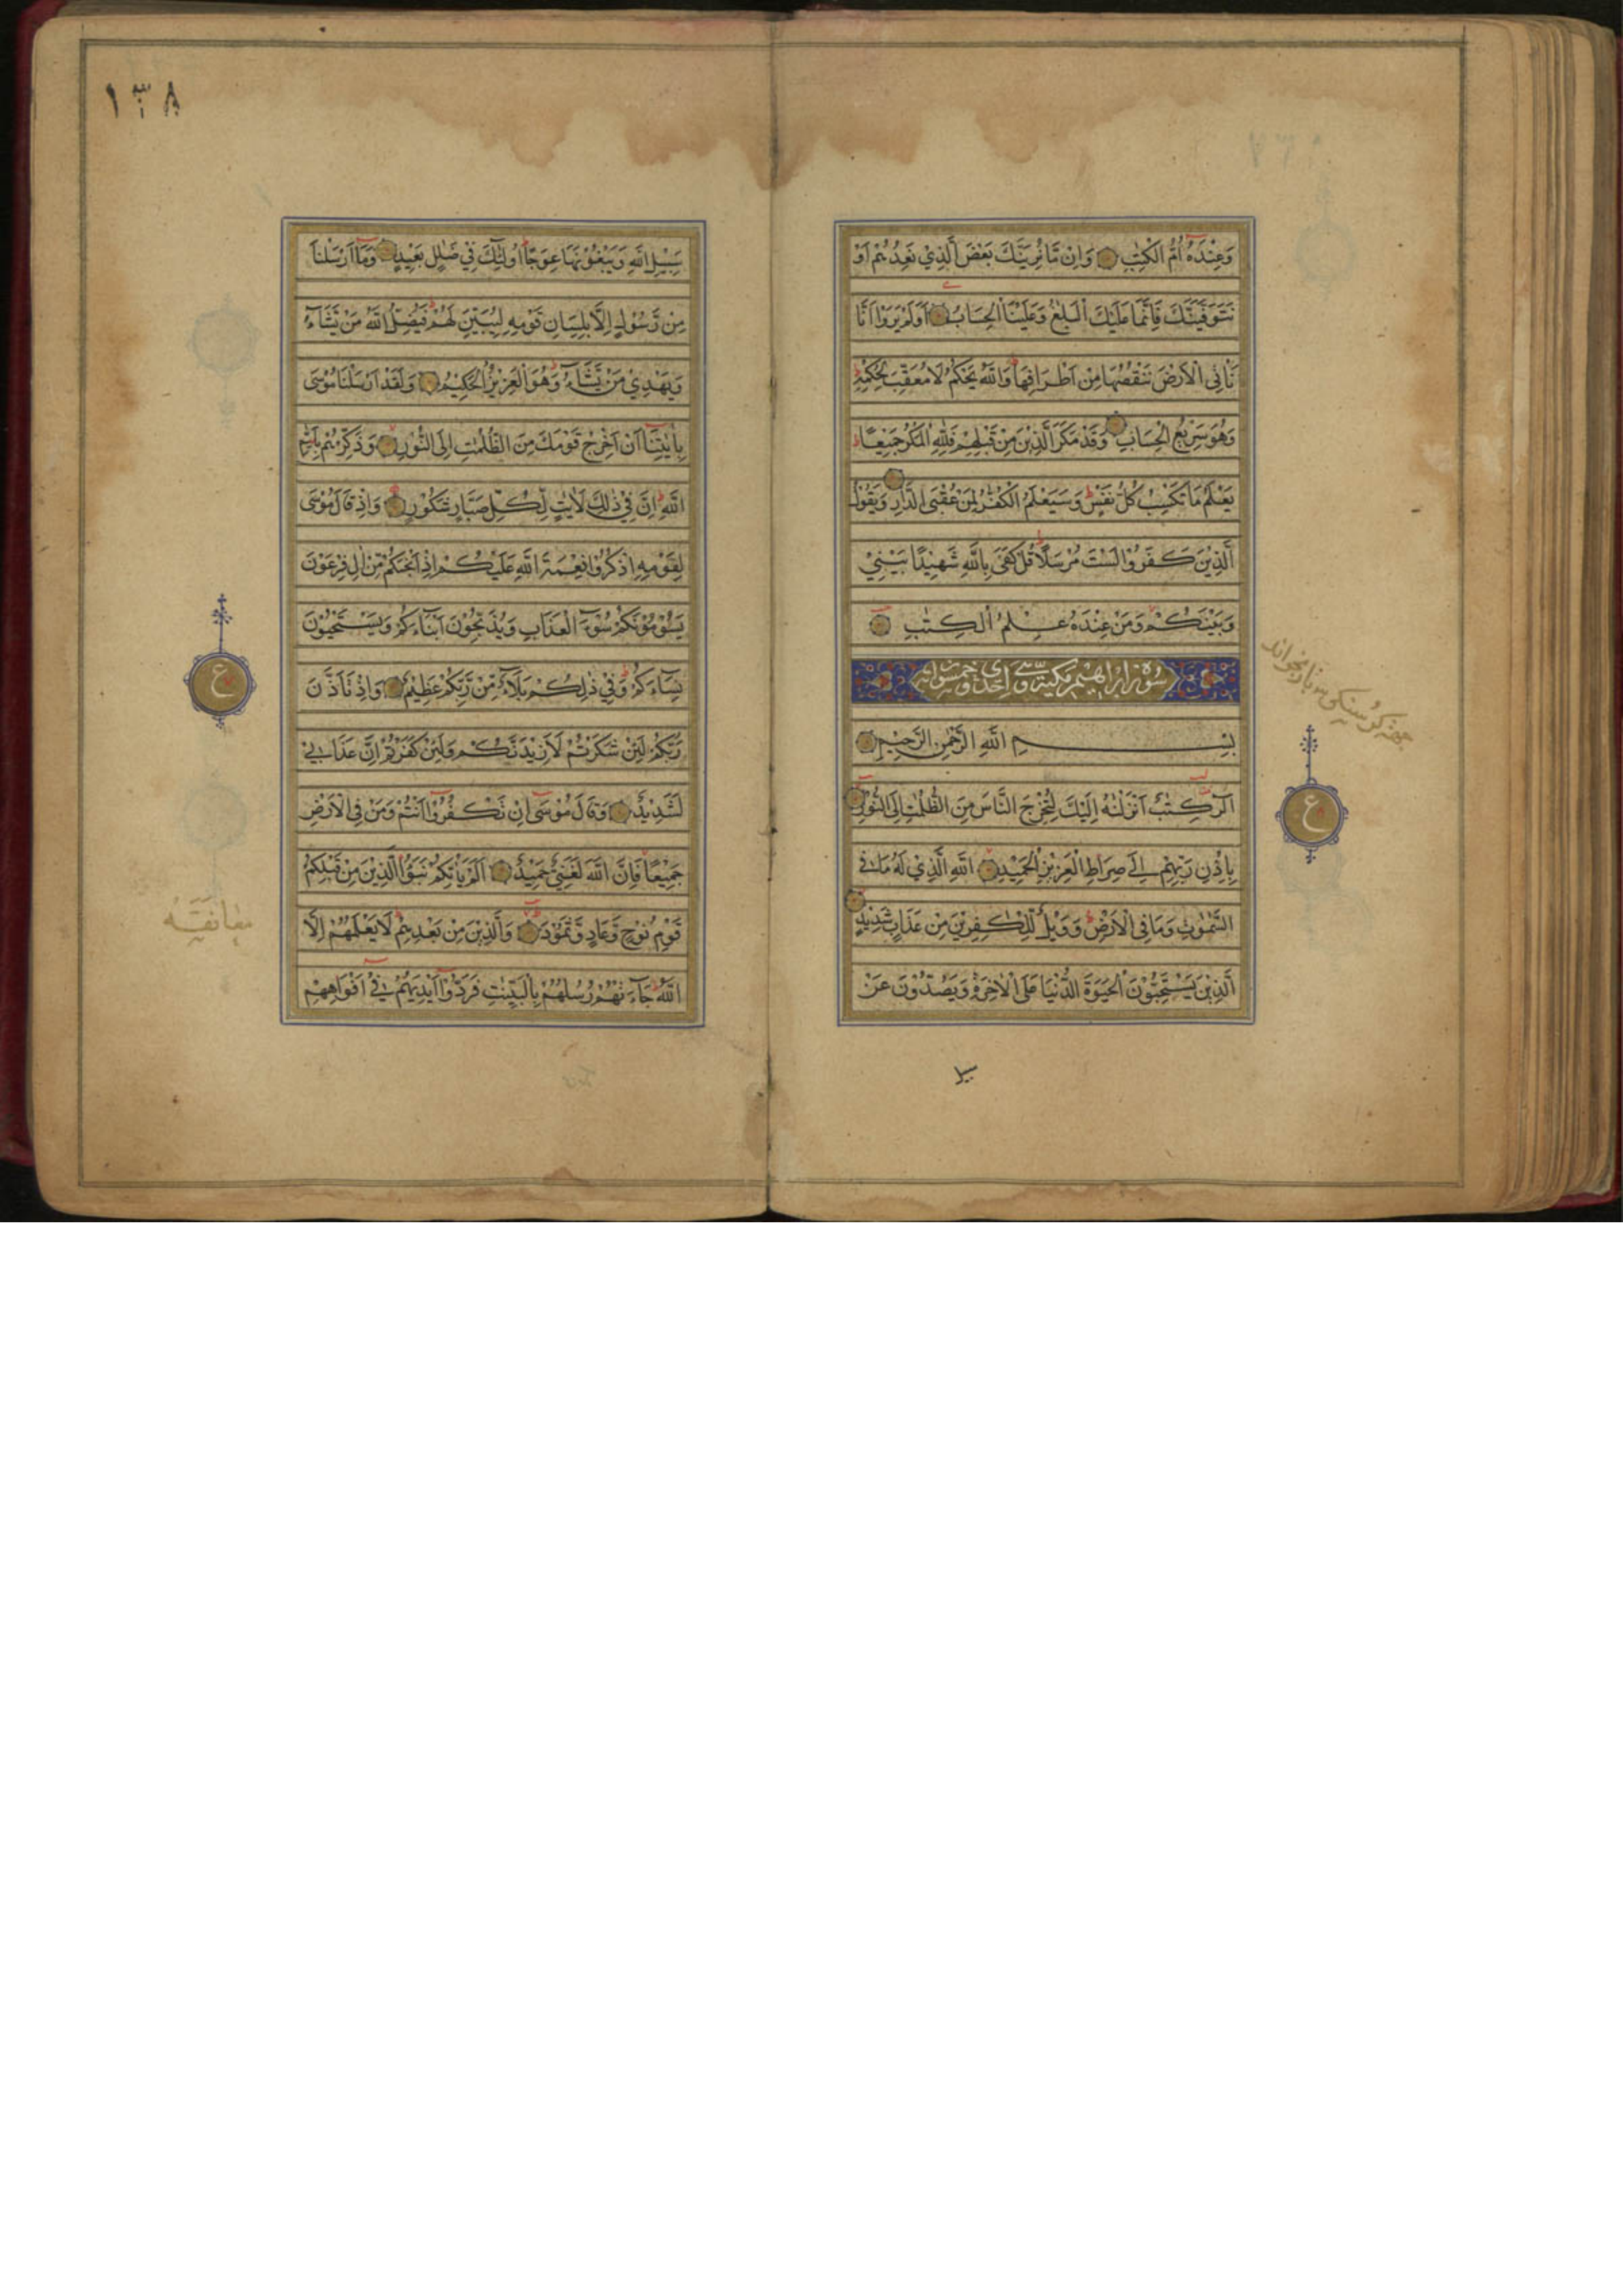 وَعِنْدَهُ اُمُّ الْكِتٰبِ وَاِنْ مَّا نُرِيَنَّكَ بَعْضَ الَّذِيْ نَعِدُهُمْ اَوْ
نَتَوَفَّيَنَّكَ فَاِنَّمَا عَلَيْكَ الْبَلٰغُ وَعَلَيْنَا الْحِسَابُ اَوَلَمْ يَرَوْا اَنَّا
نَاْتِى الْاَرْضَ نَنْقُصُهَا مِنْ اَطْرَافِهَا وَاللّٰهُ يَحْكُمُ لَا مُعَقِّبَ لِحُكْمِهٖ
وَهُوَ سَرِيْعُ الْحِسَابِ وَقَدْ مَكَرَ الَّذِيْنَ مِنْ قَبْلِهِمْ فَلِلّٰهِ الْمَكْرُ جَمِيْعًا
يَعْلَمُ مَا تَكْسِبُ كُلُّ نَفْسٍ وَسَيَعْلَمُ الْكُفّٰرُ لِمَنْ عُقْبَى الدَّارِ وَيَقُوْلُ
الَّذِيْنَ كَفَرُوْا لَسْتَ مُرْسَلًا قُلْ كَفٰى بِاللّٰهِ شَهِيْدًا بَيْنِيْ
وَبَيْنَكُمْ وَمَنْ عِنْدَهُ عِلْمُ الْكِتٰبِ
سورة ابراهيم مكية وهى احدى وخمسون اية
بِسْمِ اللّٰهِ الرَّحْمٰنِ الرَّحِيْمِ
الٓرٰ كِتٰبٌ اَنْزَلْنٰهُ اِلَيْكَ لِتُخْرِجَ النَّاسَ مِنَ الظُّلُمٰتِ اِلَى النُّوْرِ
بِاِذْنِ رَبِّهِمْ اِلٰى صِرَاطِ الْعَزِيْزِ الْحَمِيْدِ اللّٰهِ الَّذِيْ لَهُ مَا فِى
السَّمٰوٰتِ وَمَا فِى الْاَرْضِ وَوَيْلٌ لِّلْكٰفِرِيْنَ مِنْ عَذَابٍ شَدِيْدٍ
الَّذِيْنَ يَسْتَحِبُّوْنَ الْحَيٰوةَ الدُّنْيَا عَلَى الْاٰخِرَةِ وَيَصُدُّوْنَ عَنْ
سبيل
ع
١٣٨
سَبِيْلِ اللّٰهِ وَيَبْغُوْنَهَا عِوَجًا اُولٰٓئِكَ فِيْ ضَلٰلٍ بَعِيْدٍ وَمَآ اَرْسَلْنَا
مِنْ رَّسُوْلٍ اِلَّا بِلِسَانِ قَوْمِهٖ لِيُبَيِّنَ لَهُمْ فَيُضِلُّ اللّٰهُ مَنْ يَّشَآءُ
وَيَهْدِيْ مَنْ يَّشَآءُ وَهُوَ الْعَزِيْزُ الْحَكِيْمُ وَلَقَدْ اَرْسَلْنَا مُوْسٰى
بِاٰيٰتِنَآ اَنْ اَخْرِجْ قَوْمَكَ مِنَ الظُّلُمٰتِ اِلَى النُّوْرِ وَذَكِّرْهُمْ بِاَيّٰمِ
اللّٰهِ اِنَّ فِيْ ذٰلِكَ لَاٰيٰتٍ لِّكُلِّ صَبَّارٍ شَكُوْرٍ وَاِذْ قَالَ مُوْسٰى
لِقَوْمِهِ اذْكُرُوْا نِعْمَةَ اللّٰهِ عَلَيْكُمْ اِذْ اَنْجٰىكُمْ مِّنْ اٰلِ فِرْعَوْنَ
يَسُوْمُوْنَكُمْ سُوْٓءَ الْعَذَابِ وَيُذَبِّحُوْنَ اَبْنَآءَكُمْ وَيَسْتَحْيُوْنَ
نِسَآءَكُمْ وَفِيْ ذٰلِكُمْ بَلَآءٌ مِّنْ رَّبِّكُمْ عَظِيْمٌ وَاِذْ تَاَذَّنَ
رَبُّكُمْ لَئِنْ شَكَرْتُمْ لَاَزِيْدَنَّكُمْ وَلَئِنْ كَفَرْتُمْ اِنَّ عَذَابِيْ
لَشَدِيْدٌ وَقَالَ مُوْسٰى اِنْ تَكْفُرُوْٓا اَنْتُمْ وَمَنْ فِى الْاَرْضِ
جَمِيْعًا فَاِنَّ اللّٰهَ لَغَنِيٌّ حَمِيْدٌ اَلَمْ يَاْتِكُمْ نَبَؤُا الَّذِيْنَ مِنْ قَبْلِكُمْ
قَوْمِ نُوْحٍ وَّعَادٍ وَّثَمُوْدَ وَالَّذِيْنَ مِنْ بَعْدِهِمْ لَا يَعْلَمُهُمْ اِلَّا
اللّٰهُ جَآءَتْهُمْ رُسُلُهُمْ بِالْبَيِّنٰتِ فَرَدُّوْٓا اَيْدِيَهُمْ فِيْٓ اَفْوَاهِهِمْ
ع
معانقه